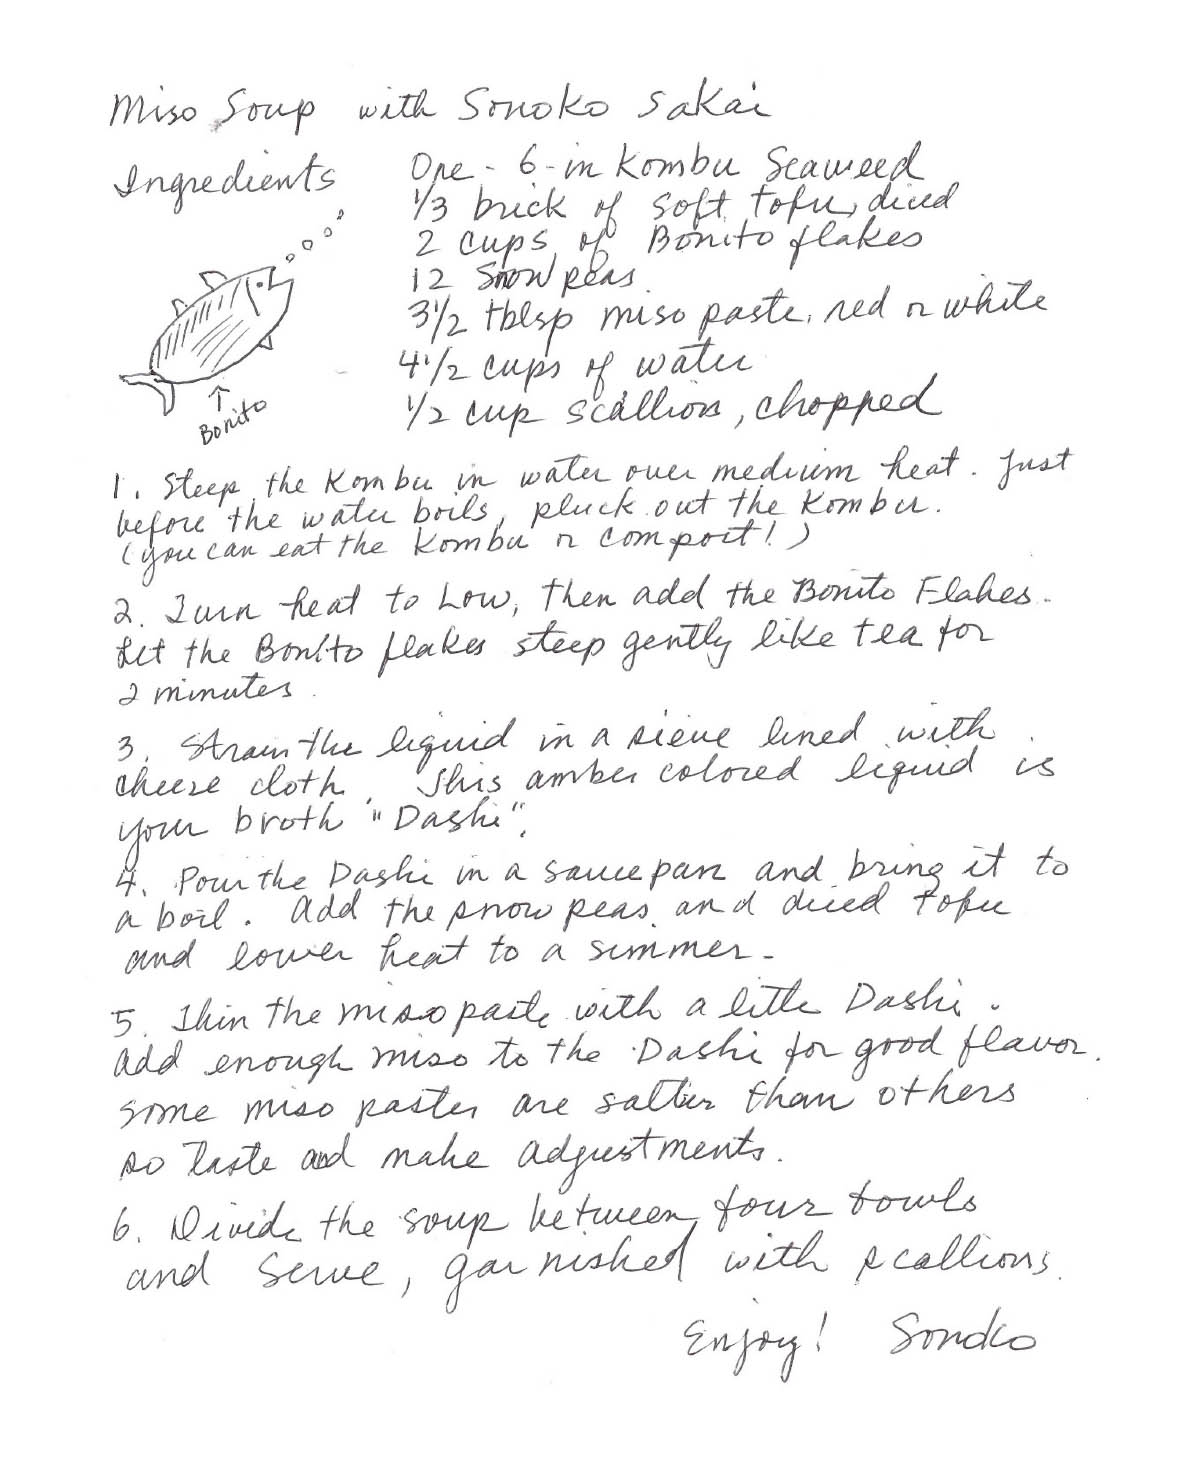 Miso Soup with Sonoko Sakai
Ingredients
One - 6-in Kombu Seaweed
1/3 brick of soft tofu, diced
2 cups of Bonito flakes
12 Snow peas
3 1/2 tblsp miso paste, red or white
4 1/2 cups of water
1/2 cup scallions, chopped
↑
Bonito
1. Steep the Kombu in water over medium heat. Just
before the water boils, pluck out the Kombu.
(you can eat the Kombu or compost!)
2. Turn heat to Low, then add the Bonito Flakes.
Let the Bonito flakes steep gently like tea for
2 minutes.
3. Strain the liquid in a sieve lined with
cheese cloth. This amber colored liquid is
your broth "Dashi".
4. Pour the Dashi in a sauce pan and bring it to
a boil. Add the snow peas and diced tofu
and lower heat to a simmer.
5. Thin the miso paste with a little Dashi.
Add enough miso to the Dashi for good flavor.
Some miso pastes are saltier than others
so taste and make adjustments.
6. Divide the soup between four bowls
and serve, garnished with scallions.
Enjoy! Sonoko